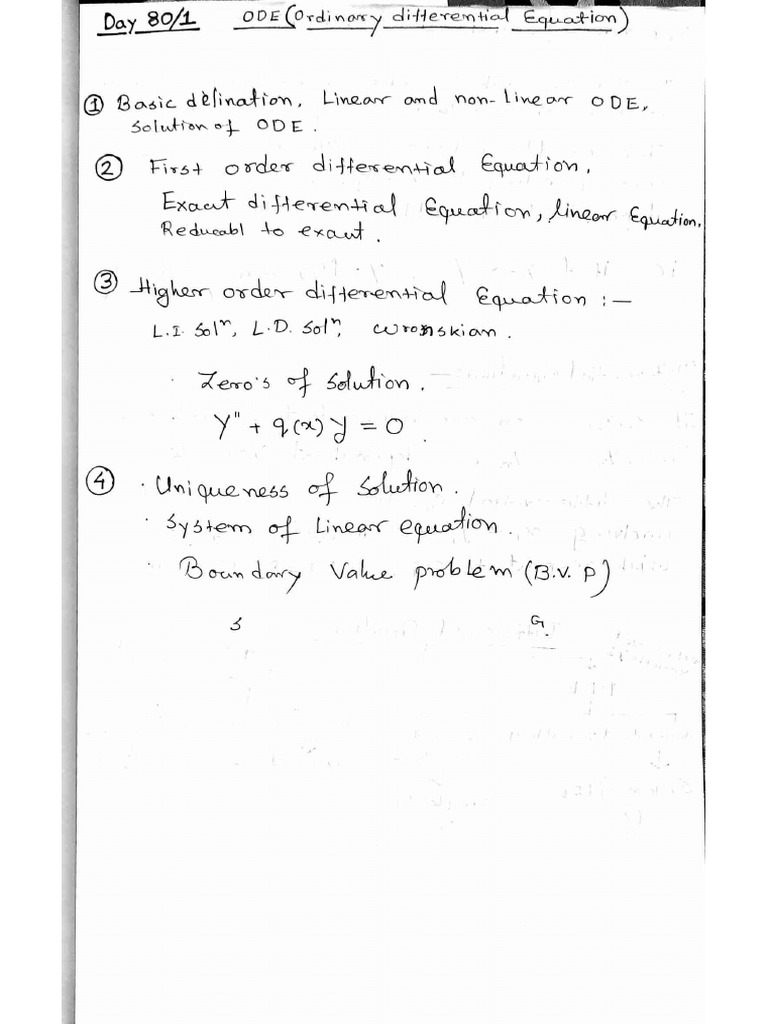 Day 80/1 ODE (Ordinary differential Equation)
① Basic delination, Linear and non-linear ODE,
solution of ODE.
② First order differential Equation,
Exaut differential Equation, linear Equation,
Reducabl to exaut.
③ Higher order differential Equation :-
L.I. solⁿ, L.D. solⁿ, wronskian.
· Zero's of solution.
· y" + q(x) y = 0.
④ · Uniqueness of solution.
· System of Linear equation.
· Boundary Value problem (B.V.P)
5 G.